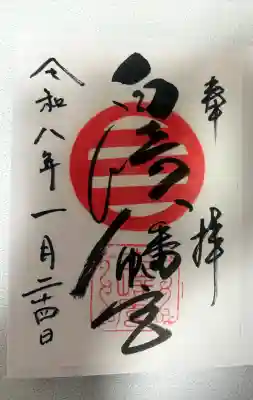 奉拝
白崎八幡宮
令和八年一月二十四日